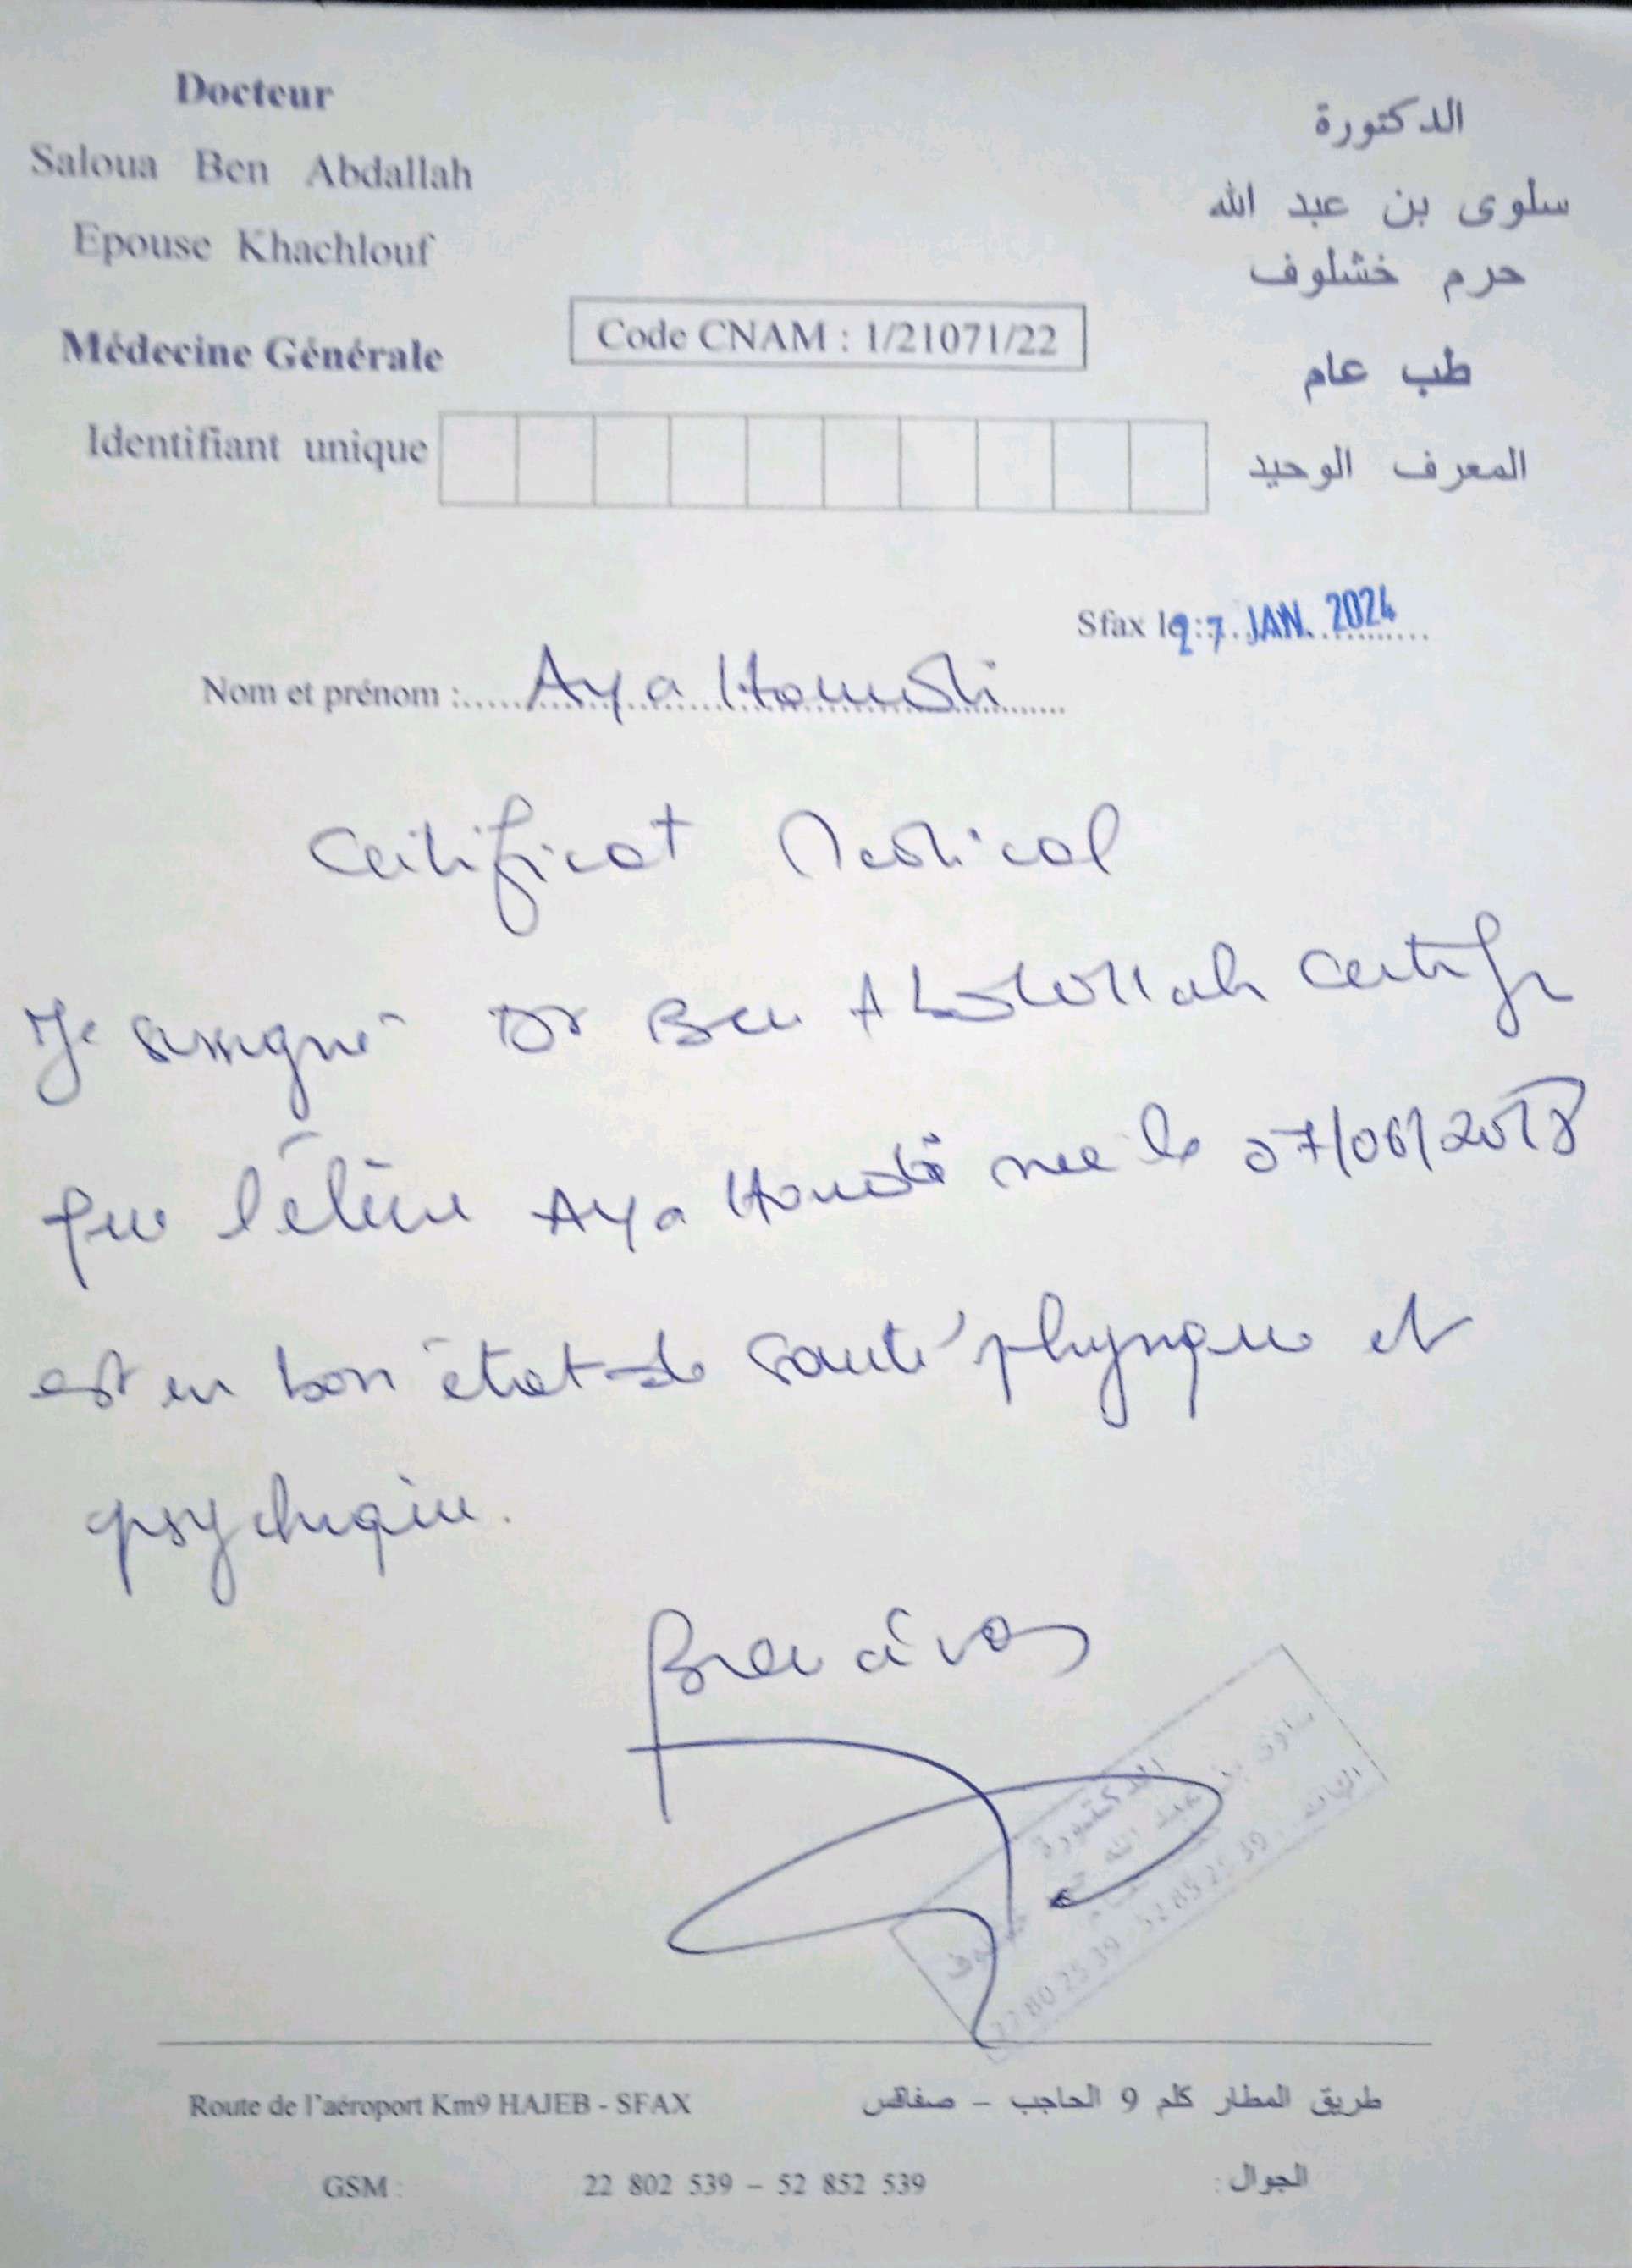 Docteur
Saloua Ben Abdallah
Epouse Khachlouf
Médecine Générale
الدكتورة
سلوى بن عبد الله
حرم خشلوف
طب عام
Code CNAM : 1/21071/22
Identifiant unique
المعرف الوحيد
Sfax le: 27 JAN. 2024
Nom et prénom : Aya
Certificat Medical
Je soussigné Dr Ben Abdallah certifie
que l'élève Aya née le 07/06/2018
est en bon état de santé physique et
psychique.
الدكتورة
سلوى بن عبد الله حرم خشلوف
طب عام
الهاتف : 52 85 25 39 - 22 80 25 39
Route de l'aéroport Km9 HAJEB - SFAX
طريق المطار كلم 9 الحاجب – صفاقس
GSM : 22 802 539 – 52 852 539 الجوال :